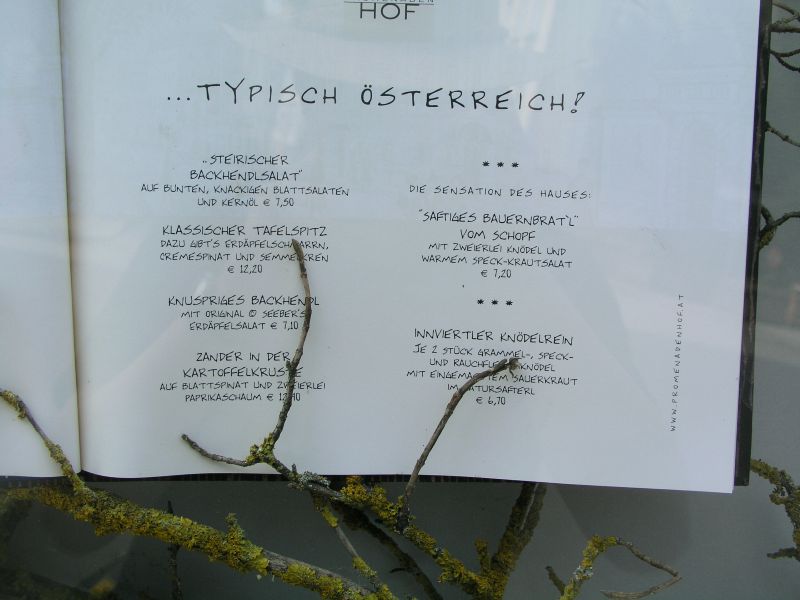 HOF
...TYPISCH ÖSTERREICH!
„STEIRISCHER
BACKHENDLSALAT"
AUF BUNTEN, KNACKIGEN BLATTSALATEN
UND KERNÖL € 7,50
KLASSISCHER TAFELSPITZ
DAZU GIBT'S ERDÄPFELSCHMARRN,
CREMESPINAT UND SEMMELKREN
€ 12,20
KNUSPRIGES BACKHENDL
MIT ORIGNAL © SEEBER'S
ERDÄPFELSALAT € 7,10
ZANDER IN DER
KARTOFFELKRUSTE
AUF BLATTSPINAT UND ZWEIERLEI
PAPRIKASCHAUM €
* * *
DIE SENSATION DES HAUSES:
"SAFTIGES BAUERNBRAT'L"
VOM SCHOPF
MIT ZWEIERLEI KNÖDEL UND
WARMEM SPECK-KRAUTSALAT
€ 7,20
* * *
INNVIERTLER KNÖDELREIN
JE 2 STÜCK GRAMMEL-, SPECK-
UND RAUCHFLEISCHKNÖDEL
MIT EINGEMACHTEM SAUERKRAUT
IM NATURSAFTERL
€ 6,70
WWW.PROMENADENHOF.AT